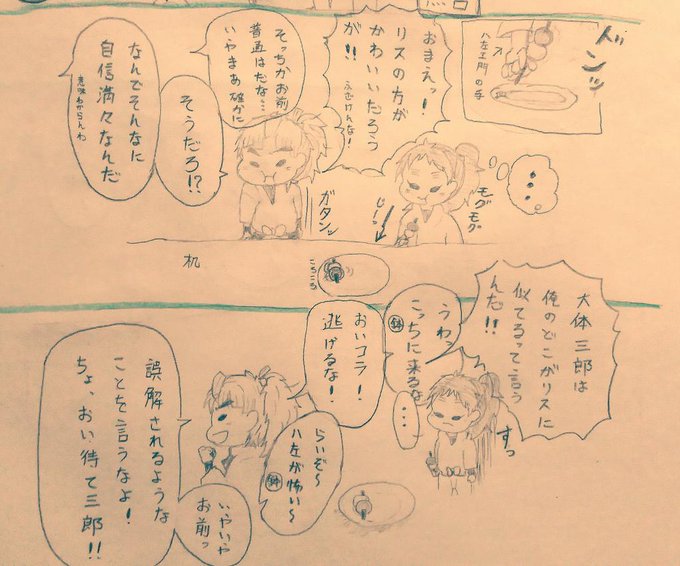 バンッ
八左ヱ門の手
おまえっ!
リスの方が
かわいいだろう
が!!
ふざけんな!
そっちかお前
普通はだな…
いやまあ確かに
そうだろ!?
なんでそんなに
自信満々なんだ
意味わからんわ
・・・
モグモグ
じーっ
ガタンッ
机
ころころ
大体三郎は
俺のどこがリスに
似てるって言う
んだ!!
うわっ
こっちに来るな
鉢
・・・
すっ
おいコラ!
逃げるな!
らいぞ〜
ハ左が怖い〜
鉢
いやいや
お前っ
誤解されるような
ことを言うなよ!
ちょ、おい待て三郎!!